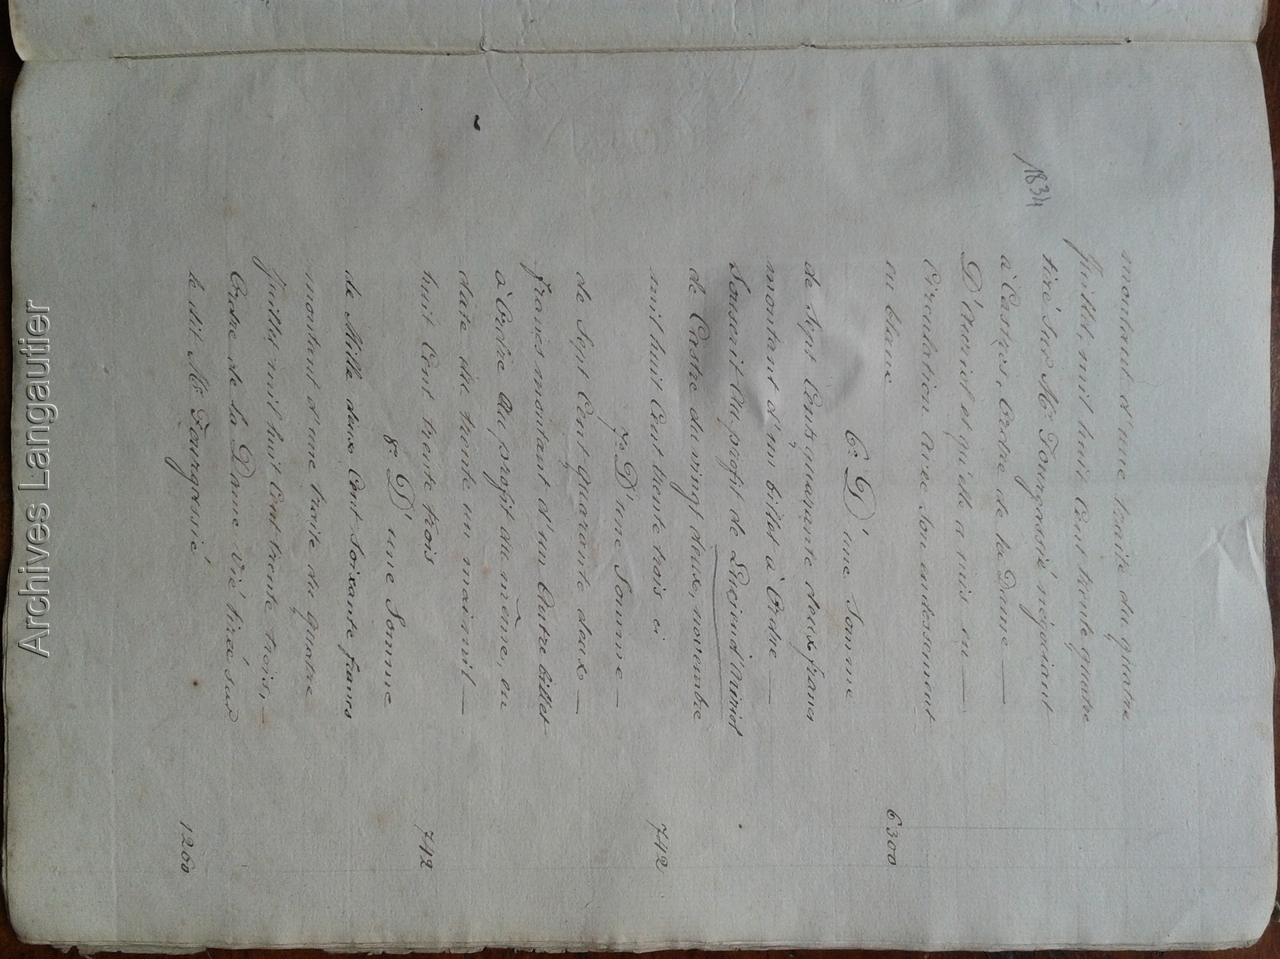 montant d'une traite du quatre
Juillet, mil huit Cent trente quatre
1834
tiré sur Mr. négociant
à Castres, Ordre de la Dame —
D' et qu'elle a mis en —
Circulation avec son endossement
en blanc 6300
6° D'une Somme
de Sept Cents quarante deux francs
montant d'un billet à Ordre —
Souscrit au profit de
de Castre du vingt deux, novembre
mil huit Cent trente trois ci 742
7° D'une Somme —
de Sept Cent quarante deux —
francs montant d'un Autre billet
à Ordre au profit du même, en
date du trente un mai mil —
huit Cent trente trois 742
8° D'une Somme
de Mille deux Cent Soixante francs
montant d'une traite du quatre
Juillet, mil huit Cent trente trois, —
Ordre de la Dame Vié tirée sur
le dit Mr. 1260
Archives Langautier